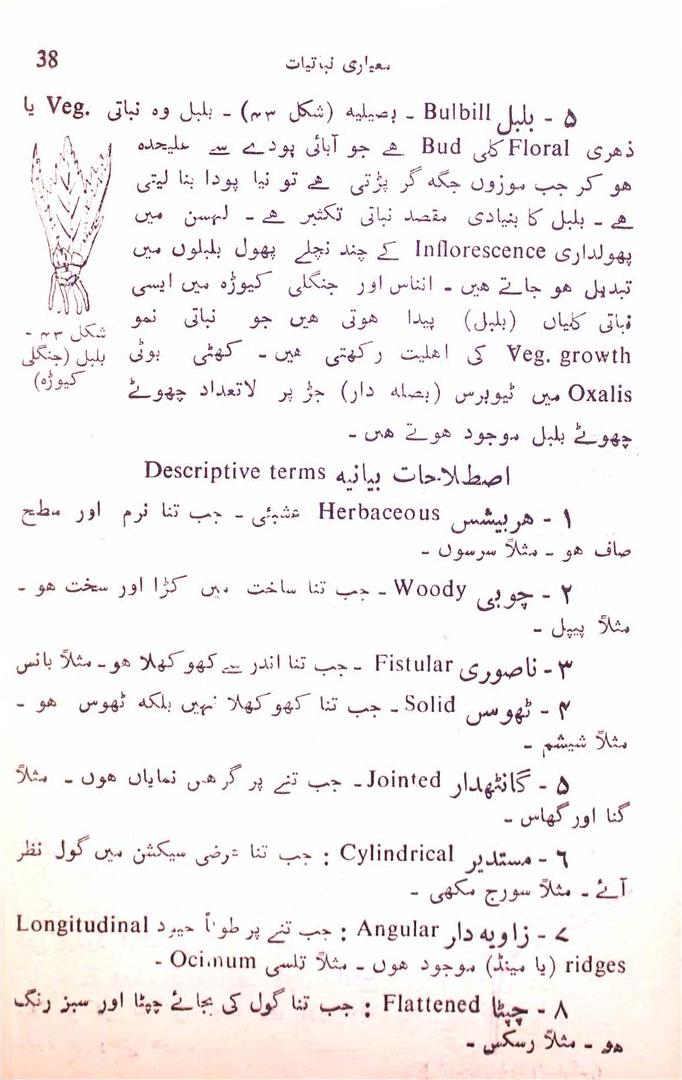 38
معیاری نباتیات
۵ - بلبل Bulbill - بصیلیه (شکل ۴۳) - بلبل وہ نباتی Veg. یا
ذھری Floral کلی Bud ھے جو آبائی پودے سے علیحدہ
ھو کر جب موزوں جگہ گر پڑتی ھے تو نیا پودا بنا لیتی
ھے - بلبل کا بنیادی مقصد نباتی تکثیر ھے - لہسن میں
پھولداری Inflorescence کے چند نچلے پھول بلبلوں میں
تبدیل ھو جاتے ھیں - انناس اور جنگلی کیوڑہ میں ایسی
نباتی کلیاں (بلبل) پیدا ھوتی ھیں جو نباتی نمو
Veg. growth کی اھلیت رکھتی ھیں - کھٹی بوٹی
Oxalis میں ٹیوبرس (بصلہ دار) جڑ پر لاتعداد چھوٹے
چھوٹے بلبل موجود ھوتے ھیں -
شکل ۴۳ -
بلبل (جنگلی
کیوڑہ)
اصطلاحات بیانیہ Descriptive terms
۱ - ھربیشس Herbaceous عشبئی - جب تنا نرم اور سطح
صاف ھو - مثلاً سرسوں -
۲ - چوبی Woody - جب تنا ساخت میں کڑا اور سخت ھو -
مثلاً پیپل -
۳ - ناصوری Fistular - جب تنا اندر سے کھوکھلا ھو - مثلاً بانس
۴ - ٹھوس Solid - جب تنا کھوکھلا نہیں بلکہ ٹھوس ھو -
مثلاً شیشم -
۵ - گانٹھدار Jointed - جب تنے پر گرھیں نمایاں ھوں - مثلاً
گنا اور گھاس -
٦ - مستدیر Cylindrical : جب تنا عرضی سیکشن میں گول نظر
آئے - مثلاً سورج مکھی -
۷ - زاویہ دار Angular : جب تنے پر طولاً حیود Longitudinal
ridges (یا مینڈ) موجود ھوں - مثلاً تلسی Ocimum -
۸ - چپٹا Flattened : جب تنا گول کی بجائے چپٹا اور سبز رنگ
ھو - مثلاً رسکس -